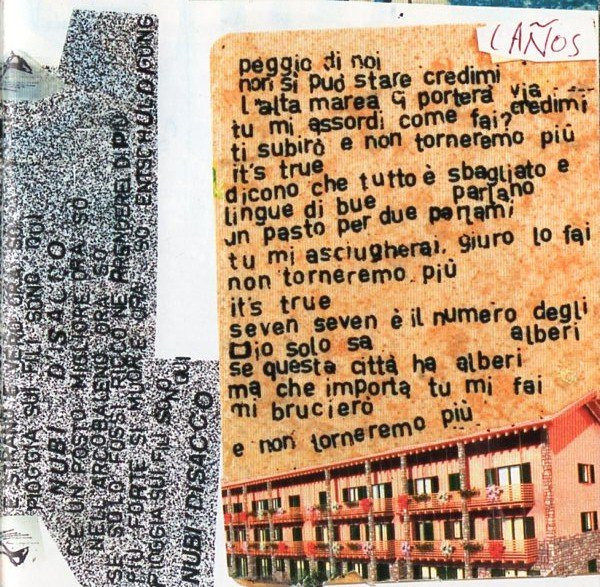 PIOGGIA SUI FILI SONO QUI
NUBI DISACCO
CE UN POSTO MIGLIORE ORA SO
NELL ARCOBALENO ORA SO
SE SOLO FOSSI NE PRENDEREI DI PIÙ
PIÙ FORTE SI MUORE ORA SO ENTSCHULDIGUNG
PIOGGIA SUI FILI SONO QUI
NUBI DISACCO
CAÑOS
peggio di noi
non si può stare credimi
l'alta marea ci porterà via
tu mi assordi come fai? credimi
ti subirò e non torneremo più
it's true
dicono che tutto è sbagliato e
lingue di bue parlano
un pasto per due parlami
tu mi asciugherai, giuro lo fai
non torneremo più
it's true
seven seven è il numero degli
Dio solo sa alberi
se questa città ha alberi
ma che importa tu mi fai
mi brucierò
e non torneremo più